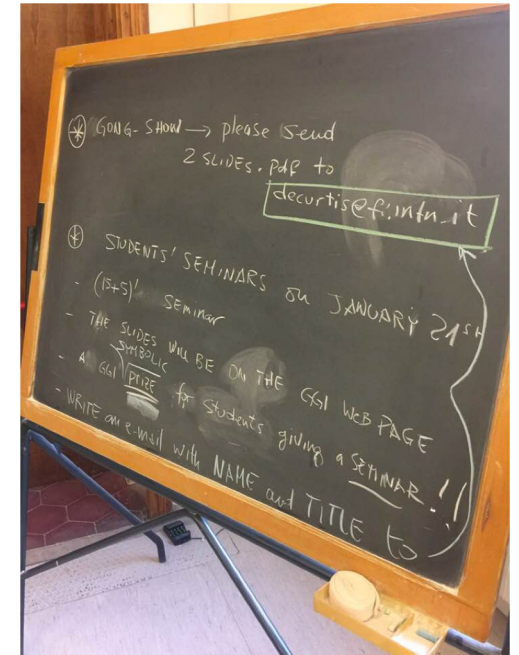 ⊛ GONG-SHOW → please send
2 SLIDES.pdf to
decurtis@fi.infn.it
⊛ STUDENTS' SEMINARS on JANUARY 21st
- (15+5)' seminar
- THE SLIDES WILL BE ON THE GGI WEB PAGE
- A GGI SYMBOLIC PRIZE for students giving a SEMINAR!!
- WRITE an e-mail with NAME and TITLE to